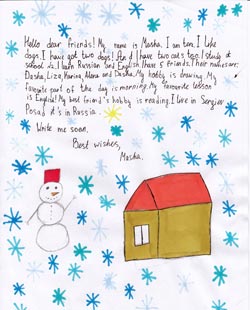 Hello dear friends! My name is Masha. I am ten. I like
dogs. I have got two dogs! And I have two cats too. I study at
school 14. I learn Russian and English. I have 5 friends. Their names are:
Dasha, Liza, Karina, Alena and Dasha. My hobby is drawing. My
favourite part of the day is morning. My favourite lesson
is English! My best friend's hobby is reading. I live in Sergiev
Posad it's in Russia.
Write me soon,
Best wishes,
Masha.